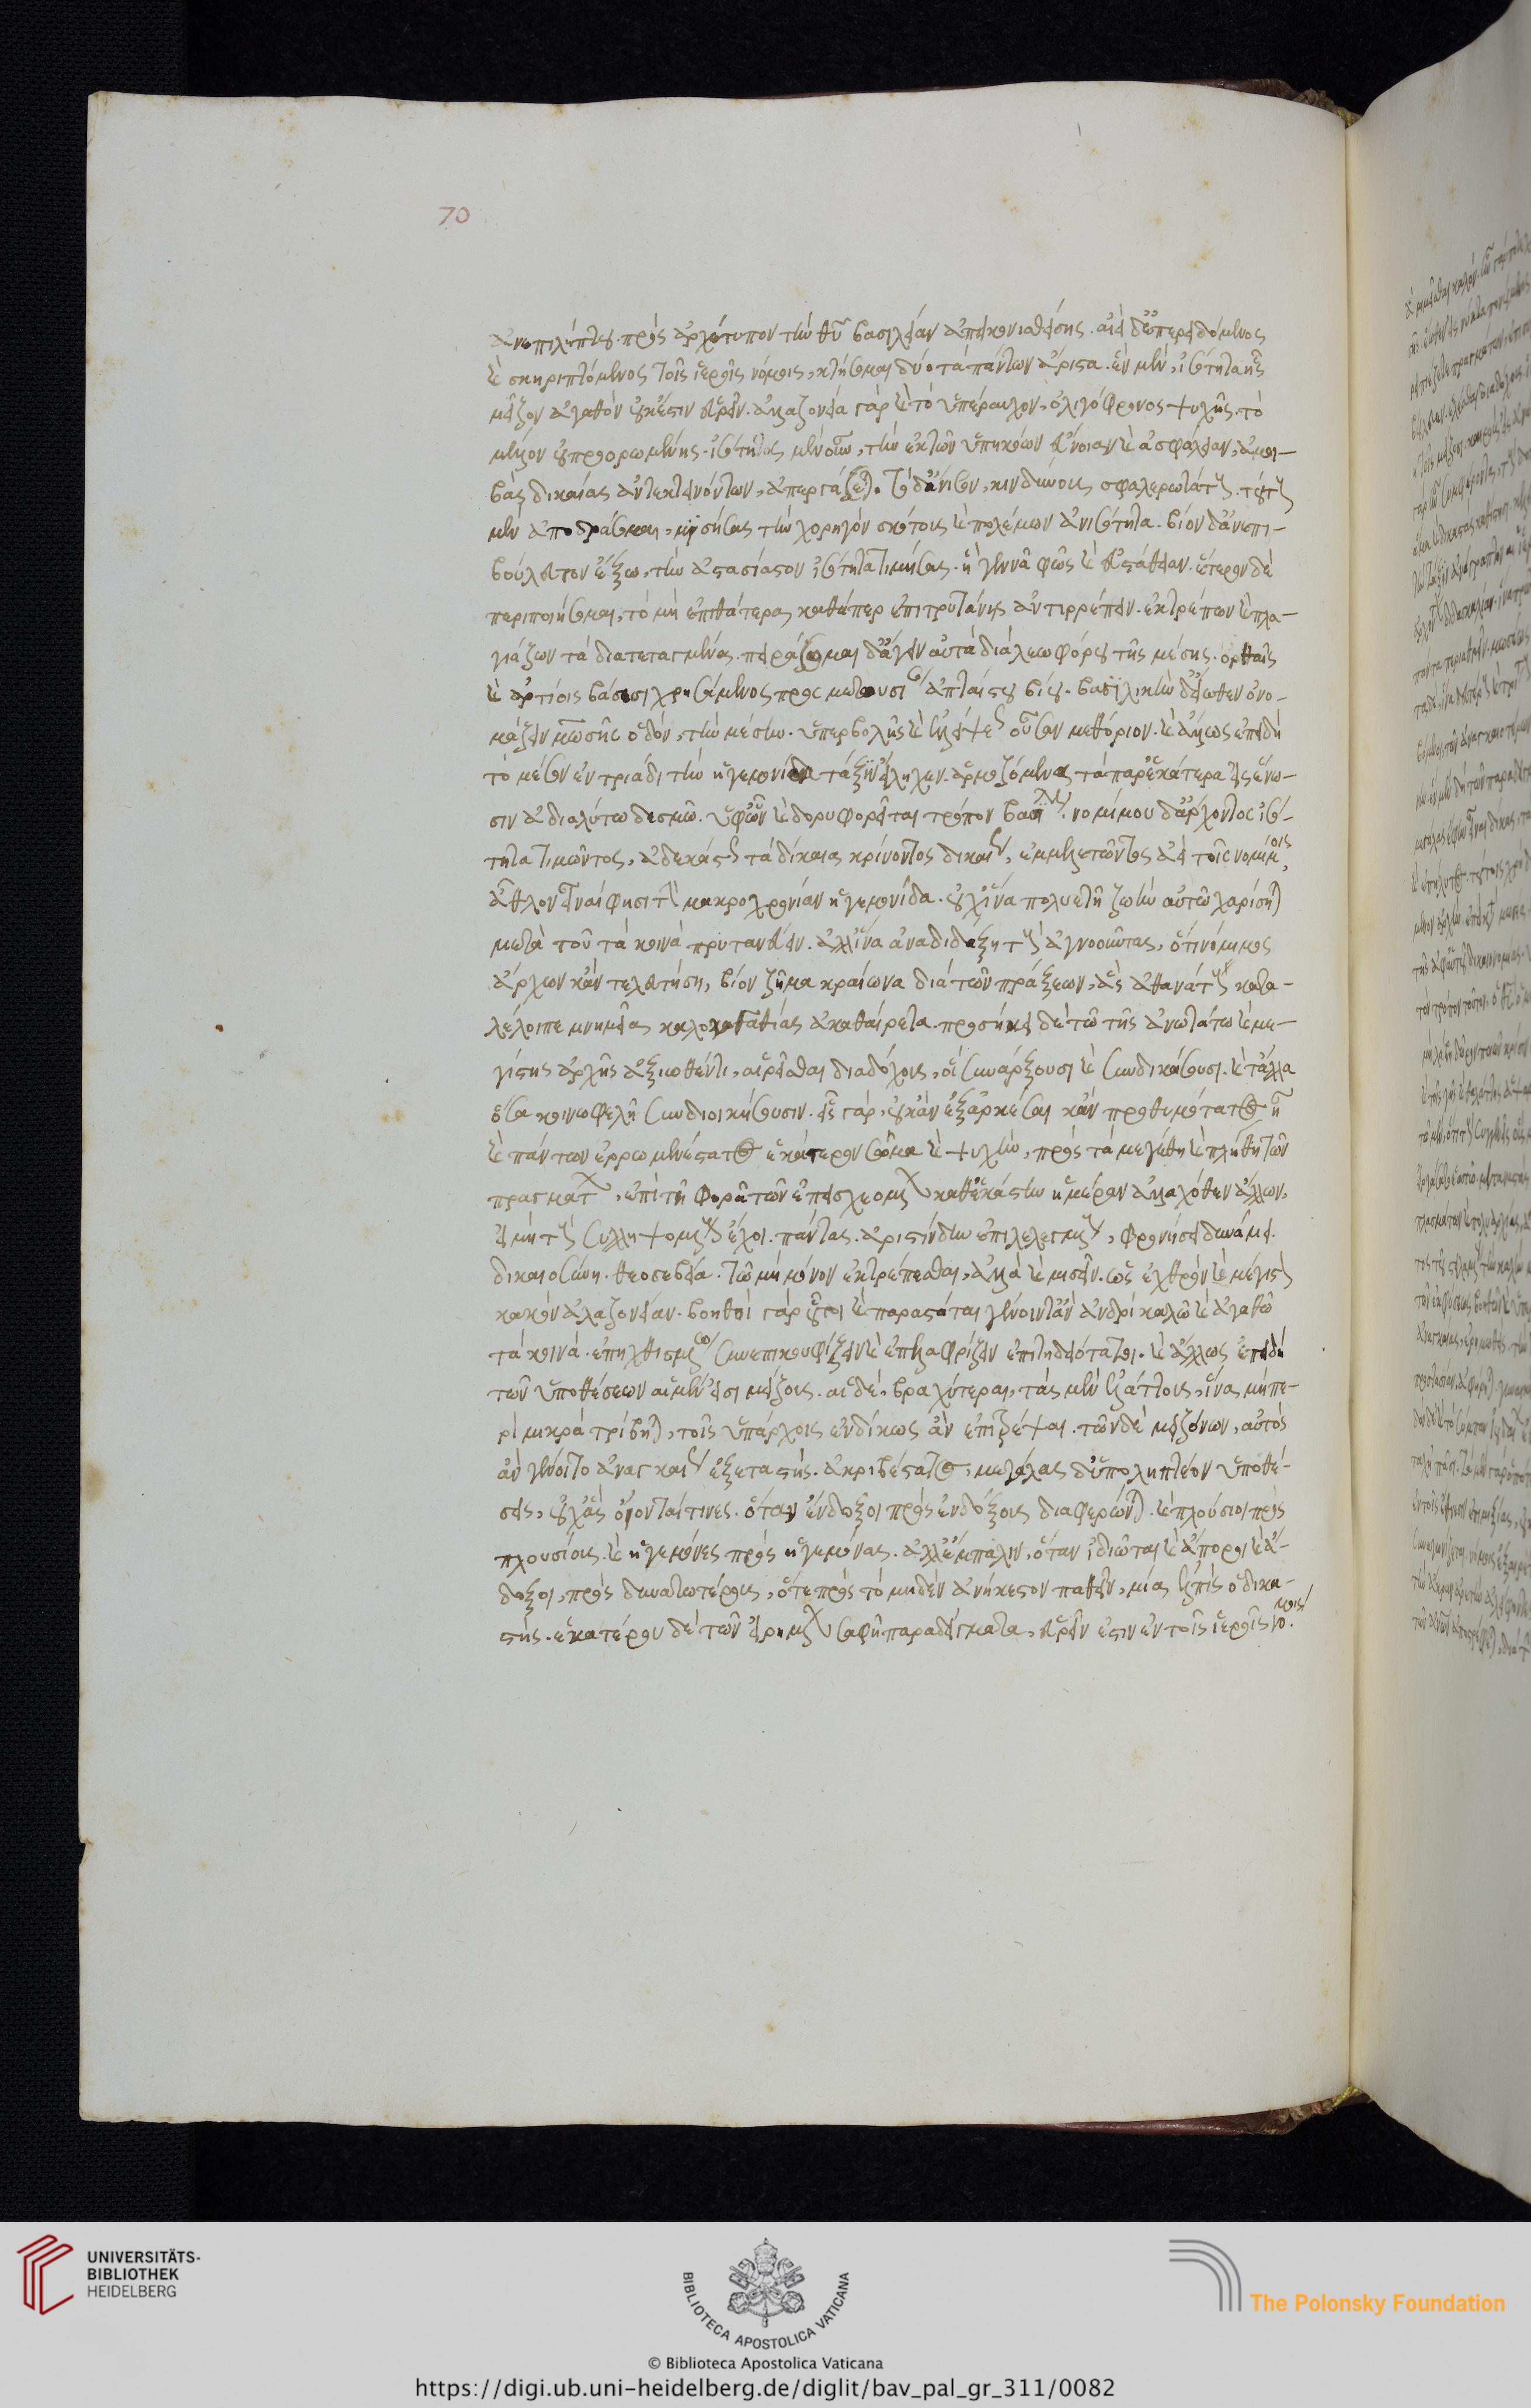 70
ἀνεπιλήπτου πρὸς ἀρχέτυπον τὴν θυ̅ βασιλείαν ἀπεικονισθείσης. ἀεὶ δ' ὑπερειδόμενος
καὶ σκηριπτόμενος τοῖς ἱεροῖς νόμοις, κτήσομαι δύο τὰ πάντων ἄριστα. ἓν μὲν, ἰσότητα ἧς
μεῖζον ἀγαθὸν οὐκ ἔστιν εὑρεῖν. ἀλαζονεία γὰρ καὶ τὸ ὑπέραυχον, ὀλιγόφρονος ψυχῆς, τὸ
μέλλον οὐ προορωμένης. ἰσότητος μὲν οὖν, τὴν ἐκ τῶν ὑπηκόων εὔνοιαν καὶ ἀσφάλειαν, ἀμοι-
βὰς δικαίας ἀντεκτεινόντων, ἀπεργάζεται. τὸ δ' ἄνισον, κινδύνους σφαλερωτάτους. τούτους
μὲν ἀποδράσομαι, μισήσας τὴν χορηγὸν σκότους καὶ πολέμων ἀνισότητα. βίον δ' ἀνεπι-
βούλευτον ἕξω, τὴν ἀστασίαστον ἰσότητα τιμήσας. ἣ γεννᾶ φῶς καὶ εὐστάθειαν. ἕτερον δὲ
περιποιήσομαι, τὸ μὴ ἐπὶ θάτερα, καθάπερ ἐπὶ τρυτάνης ἀντιρρέπειν. ἐκτρέπων καὶ πλα-
γιάζων τὰ διατεταγμένα. πειράσομαι δ' ἄγειν αὐτὰ διὰ λεωφόρου τῆς μέσης. ὀρθαῖς
καὶ ἀρτίοις βάσεσι χρησάμενος πρὸς μετουσίαν ἀπταίστου βίου. βασιλικὴν δ' εἴωθεν ὀνο-
μάζειν μωσῆς ὁδόν, τὴν μέσην. ὑπερβολῆς καὶ ἐλλείψεως οὖσαν μεθόριον. καὶ ἄλλως ἐπειδὴ
τὸ μέσον ἐν τριάδι τὴν ἡγεμονίδα τάξιν εἴληχεν. ἁρμοζόμενα τὰ παρ' ἑκάτερα εἰς ἕνω-
σιν ἀδιαλύτω δεσμῶ. ὑφ' ὧν καὶ δορυφορεῖται τρόπον βασιλέως. νομίμου δ' ἄρχοντος ἰσό-
τητα τιμῶντος, ἀδεκάστως τὰ δίκαια κρίνοντος δικαίων, ἐμμελετῶντος ἀεὶ τοῖς νομίμοις,
ἆθλον εἶναί φησι τὴν μακροχρονίαν ἡγεμονίδα. οὐχ ἵνα πολυετῆ ζωὴν αὐτῶ χαρίσηται
μετὰ τοῦ τὰ κοινὰ πρυτανεύειν. ἀλλ' ἵνα ἀναδιδάξη τοὺς ἀγνοοῦντας, ὅτι νόμιμος
ἄρχων κἂν τελευτήση, βίον ζῆ μακραίωνα διὰ τῶν πράξεων, ἃς ἀθανάτους κατα-
λέλοιπε μνημεῖα καλοκαγαθίας ἀκαθαίρετα. προσήκει δὲ τῶ τῆς ἀνωτάτω καὶ με-
γίστης ἀρχῆς ἀξιωθέντι, αἱρεῖσθαι διαδόχους, οἳ συνάρξουσι καὶ συνδικάσουσι. καὶ τἄλλα
ὅσα κοινωφελῆ συνδιοικήσουσιν. εἷς γὰρ, οὐκ ἂν ἐξαρκέσαι κἂν προθυμότατος ἦ
καὶ πάντων ἐρρωμενέστατος ἑκάτερον σῶμα καὶ ψυχὴν, πρὸς τὰ μεγέθη καὶ πλήθη τῶν
πραγμάτων, ἐπὶ τῆ φορᾶ τῶν ἐπεισχεομένων καθ' ἑκάστην ἡμέραν ἀλλαχόθεν ἄλλων,
εἰ μὴ τοὺς συλληψομένους ἔχοι. πάντας. ἀριστίνδην ἐπιλελεγμένους, φρονήσει δυνάμει.
δικαιοσύνη. θεοσεβεία. τῶ μὴ μόνον ἐκτρέπεσθαι, ἀλλὰ καὶ μισεῖν. ὡς ἐχθρὸν καὶ μέγιστον
κακὸν ἀλαζονείαν. βοηθοὶ γὰρ οὗτοι καὶ παραστάται γένοιντ' ἂν ἀνδρὶ καλῶ καὶ ἀγαθῶ
τὰ κοινὰ. ἐπηχθισμένω συνεπικουφίζειν καὶ ἐπελαφρίζειν ἐπιτηδειότατοι. καὶ ἄλλως ἐπειδὴ
τῶν ὑποθέσεων αἱ μὲν εἰσι μείζους. αἱ δὲ, βραχύτεραι, τὰς μὲν ἐλάττους, ἵνα μὴ πε-
ρὶ μικρὰ τρίβηται, τοῖς ὑπάρχοις ἐνδίκως ἂν ἐπιτρέψαι. τῶν δὲ μειζόνων, αὐτὸς
ἂν γένοιτο ἀναγκαίως ἐξεταστὴς. ἀκριβέστατος, μεγάλας δ' ὑποληπτέον ὑποθέ-
σεις, οὐχ ἃς οἴονταί τινες. ὅταν ἔνδοξοι πρὸς ἐνδόξους διαφέρωνται. καὶ πλούσιοι πρὸς
πλουσίους. καὶ ἡγεμόνες πρὸς ἡγεμόνας. ἀλλ' ἔμπαλιν, ὅταν ἰδιῶται καὶ ἄποροι καὶ ἄ-
δοξοι, πρὸς δυνατωτέρους, ὅτε πρὸς τὸ μηδὲν ἀνήκεστον παθεῖν, μία ἐλπὶς ὁ δικα-
στής. ἑκατέρου δὲ τῶν εἰρημένων σαφῆ παραδείγματα, εὑρεῖν ἔστιν ἐν τοῖς ἱεροῖς νόμοις.
UNIVERSITÄTS-
BIBLIOTHEK
HEIDELBERG
BIBLIOTECA APOSTOLICA VATICANA
The Polonsky Foundation
© Biblioteca Apostolica Vaticana
https://digi.ub.uni-heidelberg.de/diglit/bav_pal_gr_311/0082